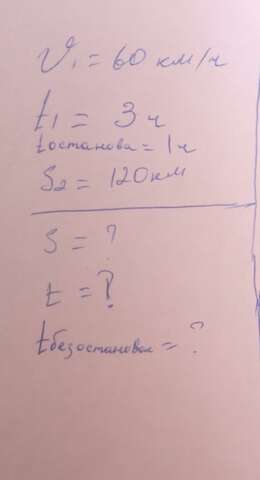 V₁ = 60 км/ч
t₁ = 3 ч
tостанова = 1 ч
S₂ = 120 км
S = ?
t = ?
tбезостановок = ?